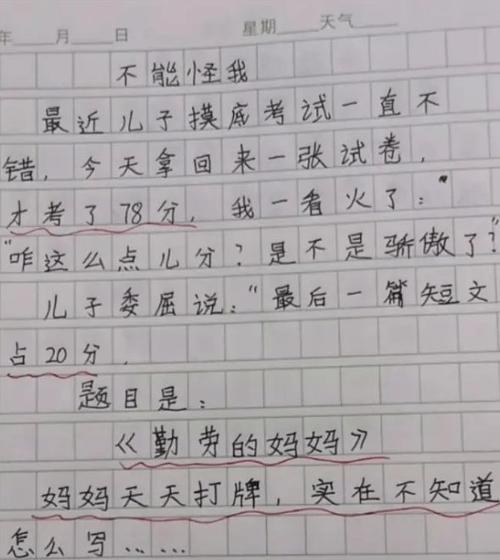 年 月 日 星期 天气
不能怪我
最近儿子摸底考试一直不
错，今天拿回来一张试卷，
才考了78分，我一看火了："
"咋这么点儿分？是不是骄傲了？"
儿子委屈说："最后一篇短文
占20分．
题目是：
《勤劳的妈妈》
妈妈天天打牌，实在不知道
怎么写……